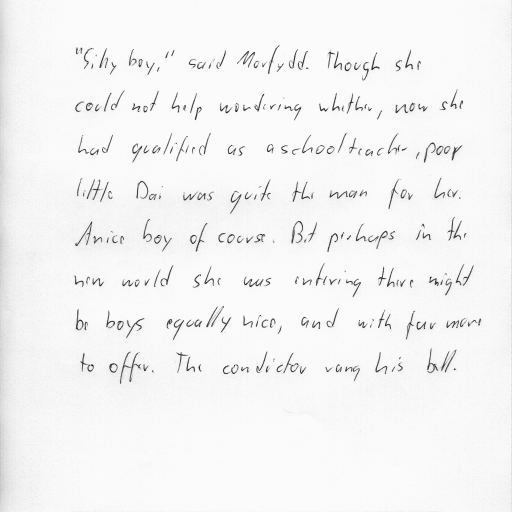 "Silly boy," said Morfydd. Though she
could not help wondering whether, now she
had qualified as a schoolteacher, poor
little Dai was quite the man for her.
A nice boy of course. But perhaps in the
new world she was entering there might
be boys equally nice, and with far more
to offer. The conductor rang his bell.